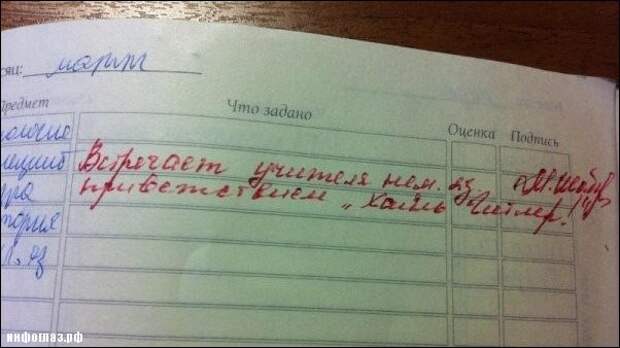 сяц: март
Предмет Что задано Оценка Подпись
Встречает учителя нем. яз.
приветствием „Хайль Гитлер!"
тория
инфоглаз.рф